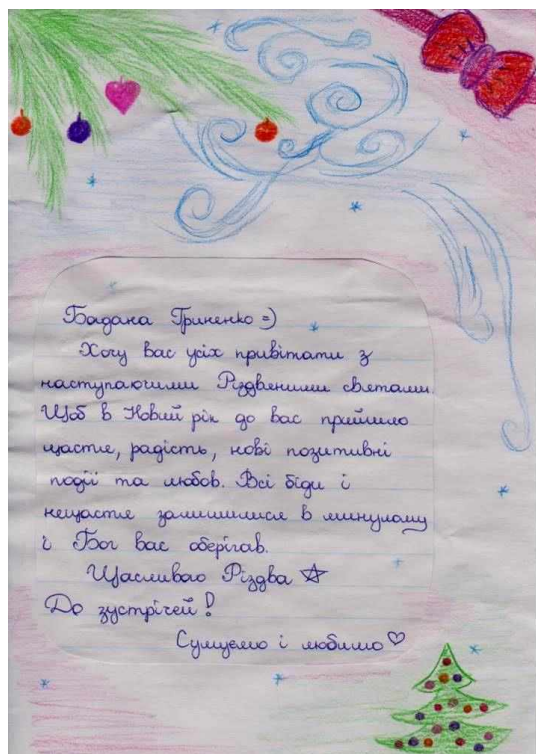 Багдана Гриненко =)
Хочу вас усіх привітати з
наступаючими Різдвяними святами.
Щоб в Новий рік до вас прийшло
щастя, радість, нові позитивні
події та любов. Всі біди і
нещастя залишилися в минулому
і Бог вас оберігав.
Щасливого Різдва ☆
До зустрічей!
Сумуємо і любимо ♡